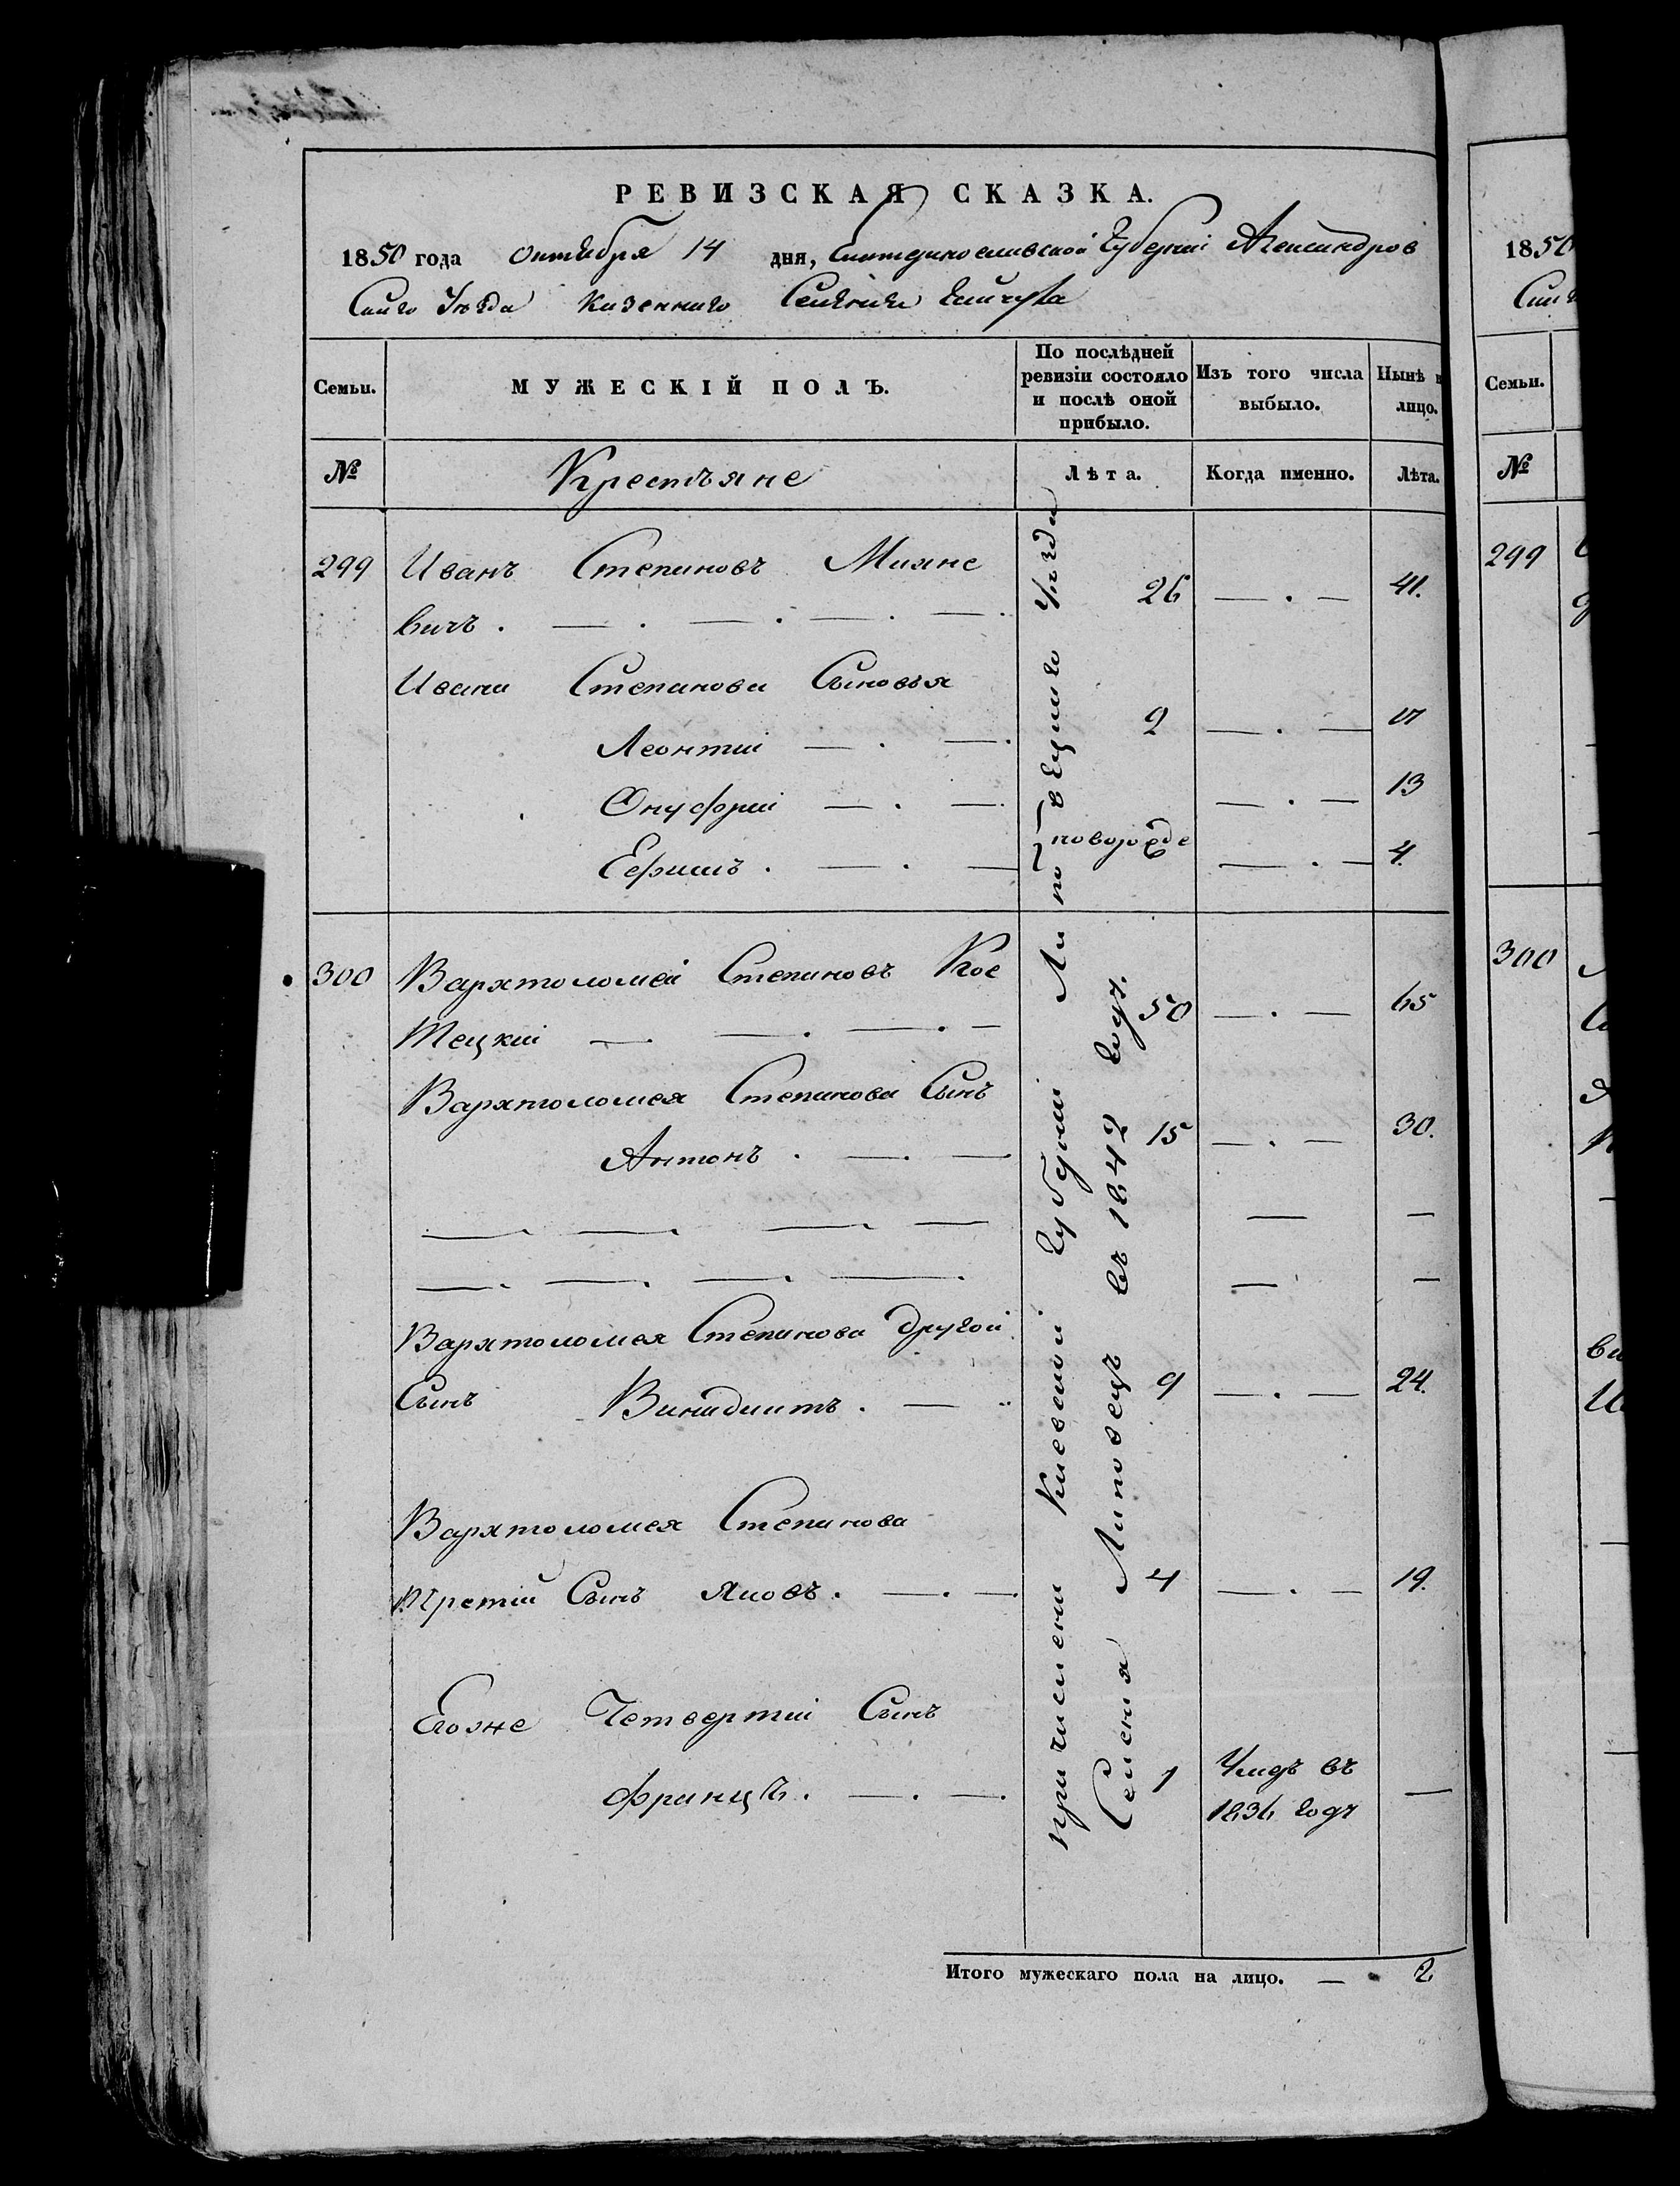 РЕВИЗСКАЯ СКАЗКА.
1850 года Октября 14 дня, Екатеринославской Губерніи Александров
Скаго Уезда Казеннаго Селенія
Семьи.
МУЖЕСКІЙ ПОЛЪ.
По послѣдней ревизіи состояло и послѣ оной прибыло.
Изъ того числа выбыло.
Нынѣ н лицо.
№
Крестьяне
Лѣта.
Когда именно.
Лѣта.
299 Иванъ Степановъ Маяне 26 — . — 41.
вичъ . — . — . — . — .
Ивана Степанова Сыновья
Леонтій — . — . 2 — . — 17
Онуфрій — . — . — . — 13
новорожде
Ефимъ . — . — — . — 4.
300 Вархтоломей Степановъ Кос 50 — . — 65
тецкій — . — . — . —
Вархтоломея Степанова Сынъ
Антонъ . — . — 15 — . — 30.
— . — . — . — — —
— . — . — . — . — —
Вархтоломея Степанова другой
Сынъ Винидиктъ . — 9 — . — 24.
Вархтоломея Степанова
третій Сынъ Яковъ . — . — 4 — . — 19.
Егоже Четвертій Сынъ
Францъ . — . — . 1 Умеръ въ —
1836 годѣ
причислени Киевской Губерніи Ли по вецкаго Уѣзда
Селенія Липовецъ въ 1842 годѣ.
Итого мужескаго пола на лицо. — 2
1850
299
300
Семьи.
№